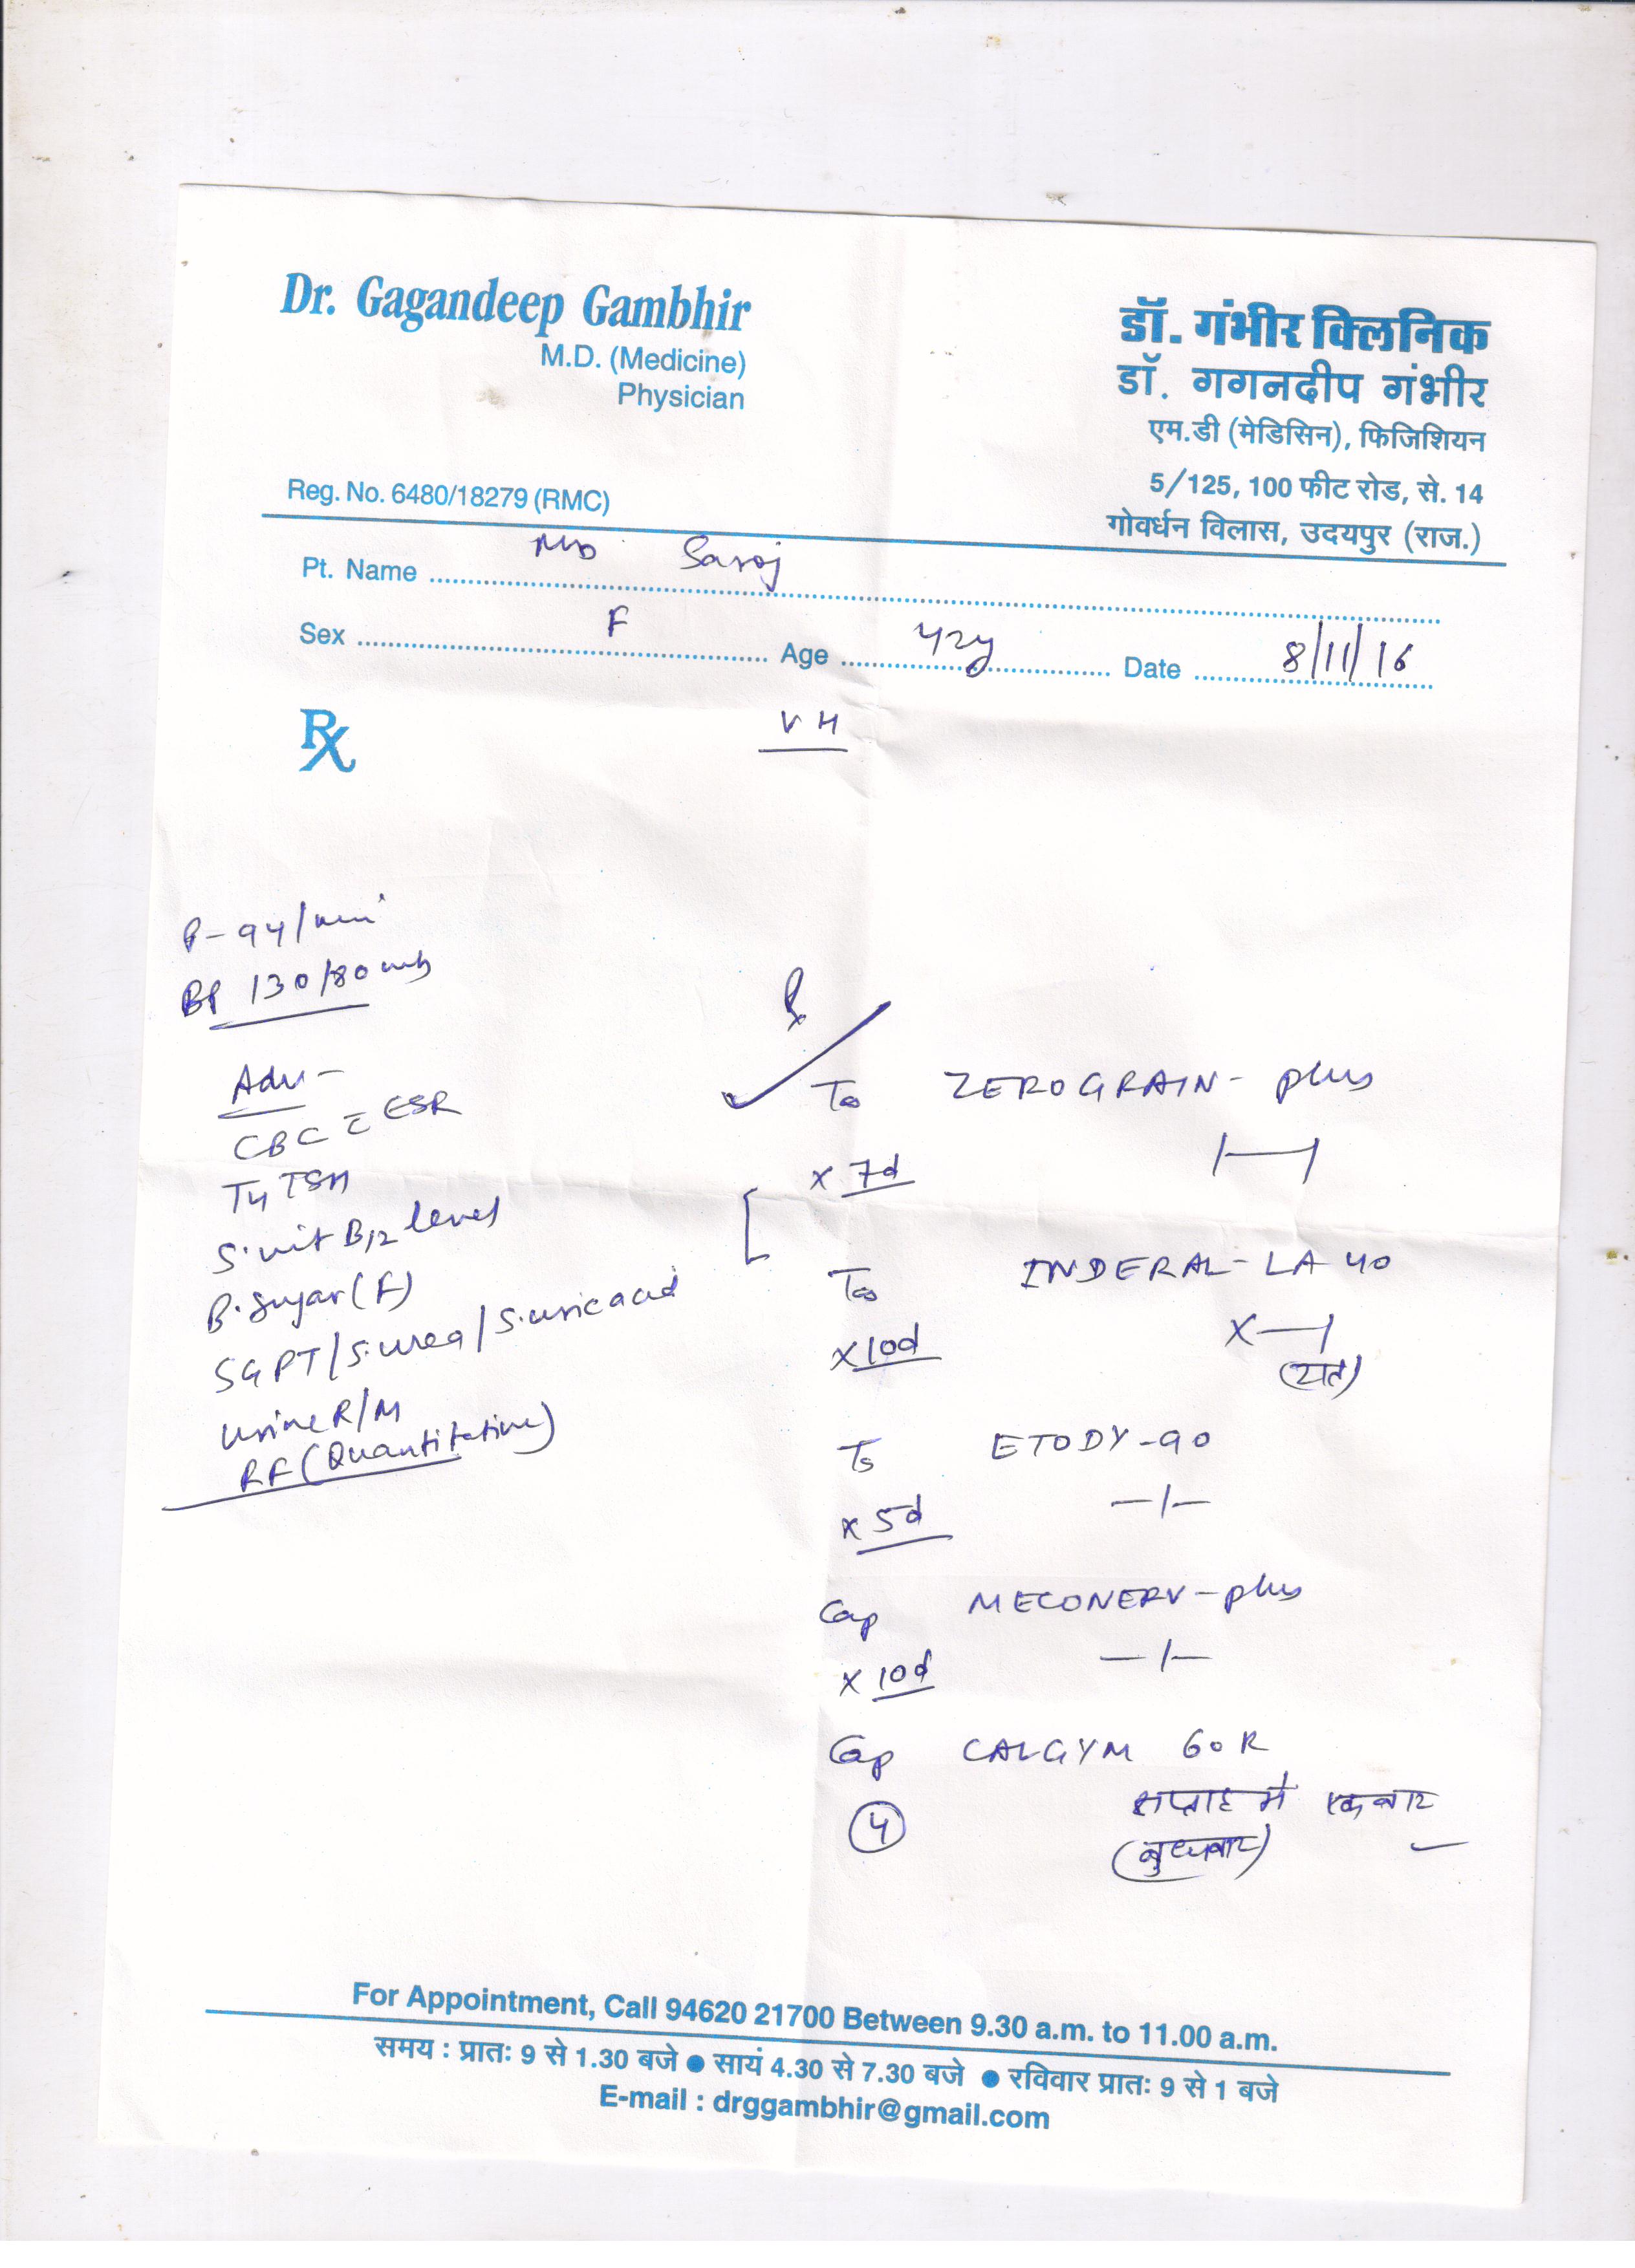 Dr. Gagandeep Gambhir
M.D. (Medicine)
Physician
Reg. No. 6480/18279 (RMC)
डॉ. गंभीर क्लिनिक
डॉ. गगनदीप गंभीर
एम.डी (मेडिसिन), फिजिशियन
5/125, 100 फीट रोड, से. 14
गोवर्धन विलास, उदयपुर (राज.)
Pt. Name Saroj
Sex F Age 42y Date 8/11/16
Rx
V H
P-94/min
BP 130/80
Adv-
CBC c ESR
T4 TSH
S. vit B12 level
B. Sugar (F)
SGPT/S. urea/S. uric acid
Urine R/M
RF (Quantitative)
Rx
ZEROGRAIN - plus
x 7d
INDERAL - LA 40
x 10d
x—|
ETODY-90
x 5d
—|—
Cap MECONERV - plus
x 10d
—|—
Cap CALGYM 60K
सप्ताह में एक बार
4
(बुधवार)
For Appointment, Call 94620 21700 Between 9.30 a.m. to 11.00 a.m.
समय : प्रातः 9 से 1.30 बजे ● सायं 4.30 से 7.30 बजे ● रविवार प्रातः 9 से 1 बजे
E-mail : drggambhir@gmail.com